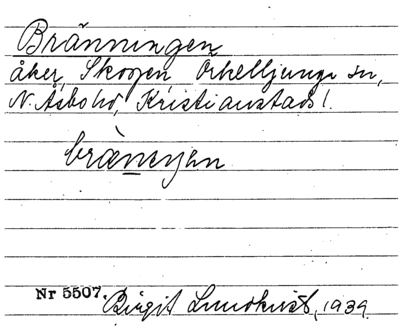 Bränningen
åker, Skogen Örkelljunga sn,
N. Åsbo hd, Kristianstads l.
bränenen
Nr 5507. Birgit Lundkvist, 1939.